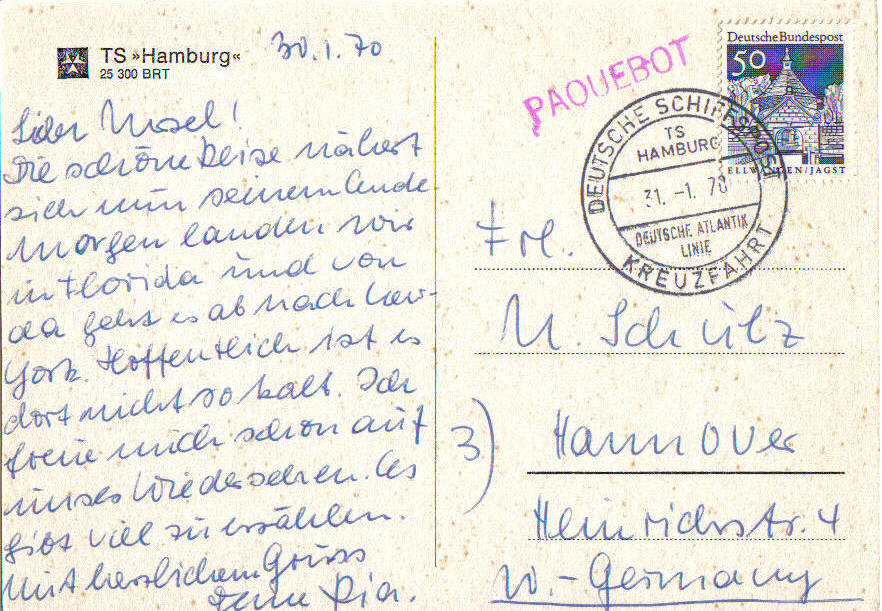 TS »Hamburg«
25 300 BRT
30.1.70
Lieber Ursel!
Die schöne Reise nähert
sich nun seinem Ende
Morgen landen wir
in Florida und von
da geht es ab nach New-
York. Hoffentlich ist es
dort nicht so kalt. Ich
freue mich schon auf
unser Wiedersehen. Es
gibt viel zu erzählen.
Mit herzlichem Gruss
Deine Pia.
PAQUEBOT
Deutsche Bundespost
50
ELLWANGEN/JAGST
DEUTSCHE SCHIFFSPOST
TS
HAMBURG
31.-1.70
DEUTSCHE ATLANTIK
LINIE
KREUZFAHRT
Frl.
U. Schülz
3) Hannover
Heinrichstr. 4
W.-Germany